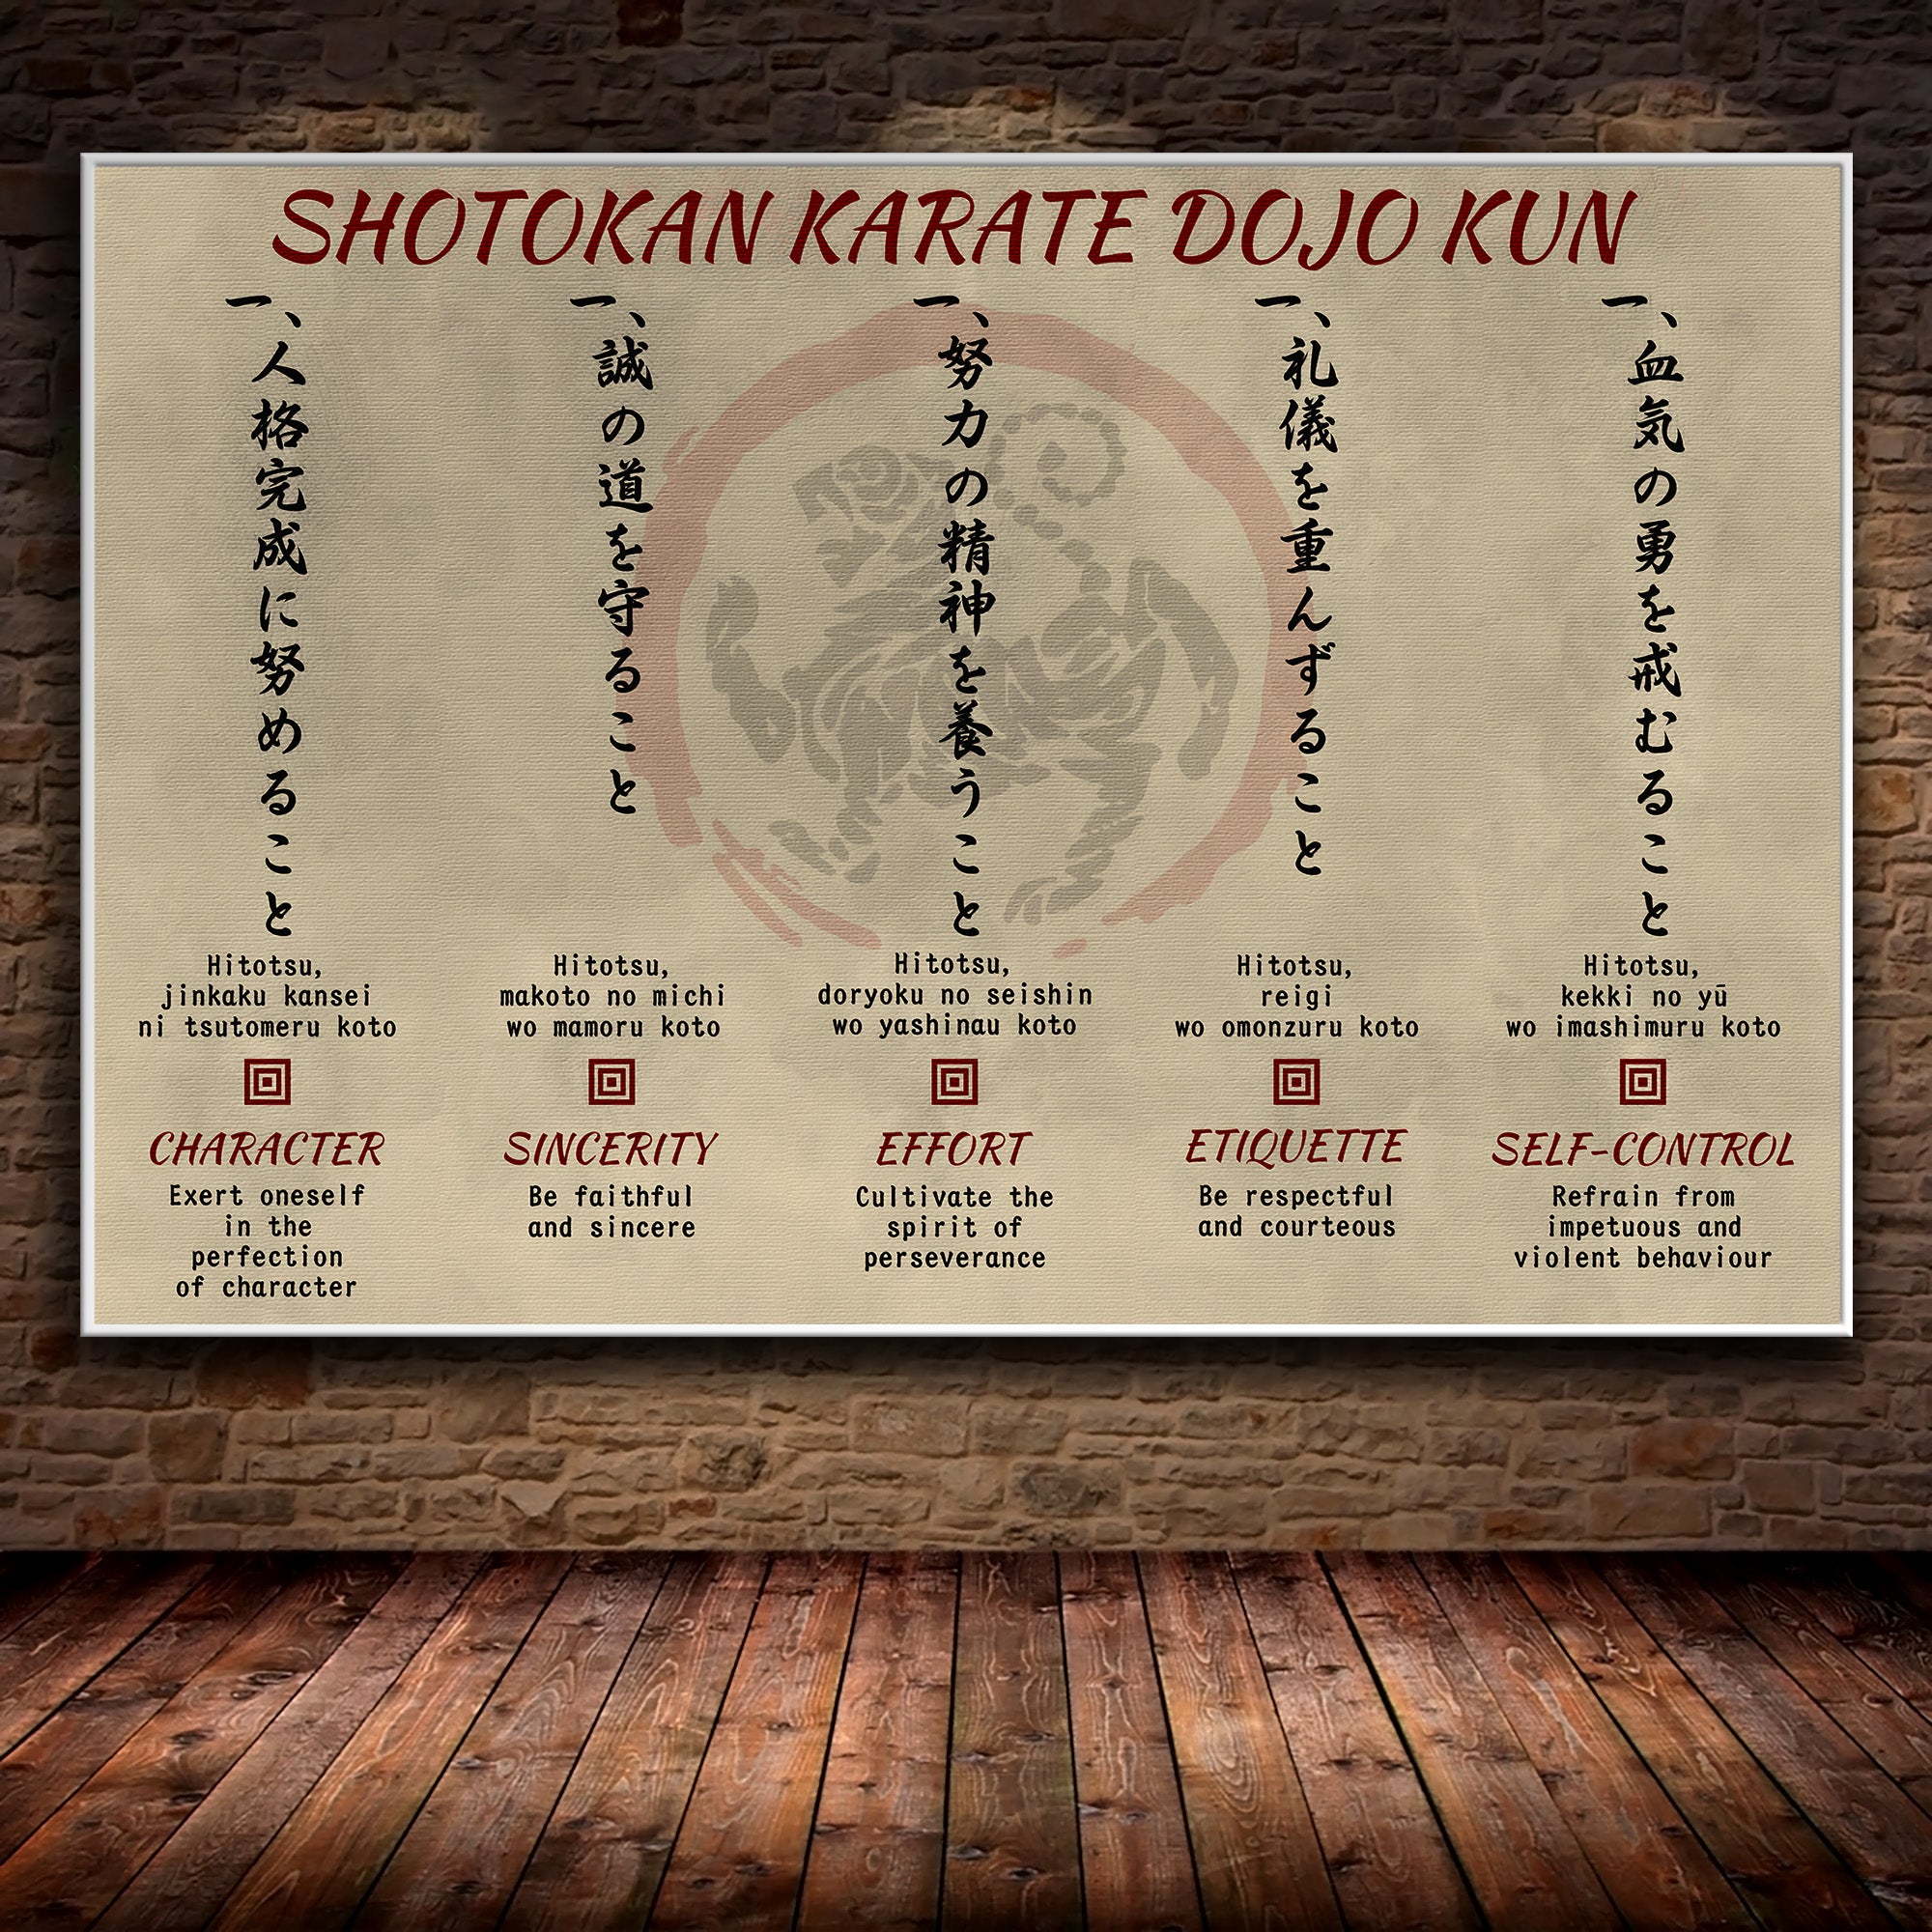 SHOTOKAN KARATE DOJO KUN
一、人格完成に努めること
Hitotsu,
jinkaku kansei
ni tsutomeru koto
CHARACTER
Exert oneself
in the
perfection
of character
一、誠の道を守ること
Hitotsu,
makoto no michi
wo mamoru koto
SINCERITY
Be faithful
and sincere
一、努力の精神を養うこと
Hitotsu,
doryoku no seishin
wo yashinau koto
EFFORT
Cultivate the
spirit of
perseverance
一、礼儀を重んずること
Hitotsu,
reigi
wo omonzuru koto
ETIQUETTE
Be respectful
and courteous
一、血気の勇を戒むること
Hitotsu,
kekki no yū
wo imashimuru koto
SELF-CONTROL
Refrain from
impetuous and
violent behaviour